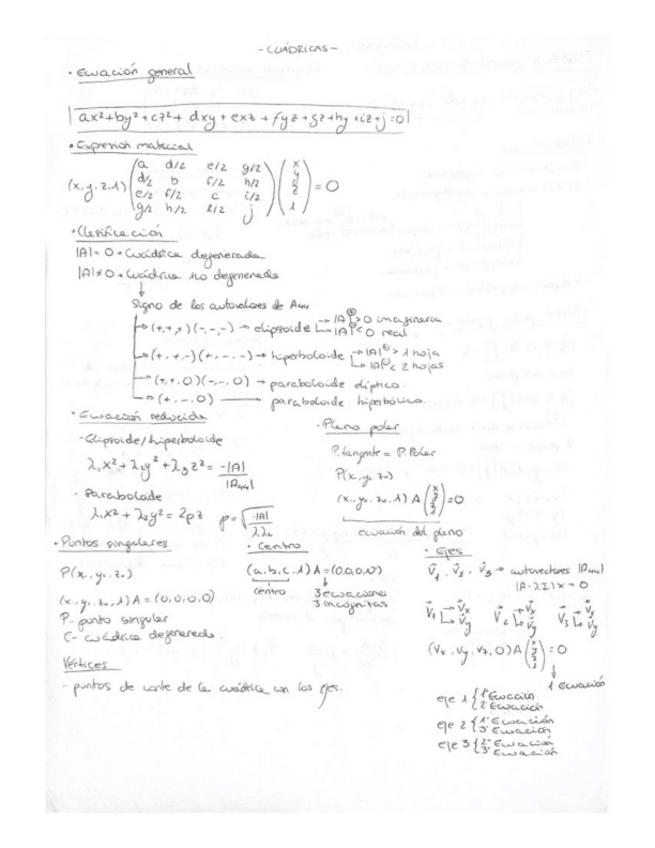 - CUÁDRICAS -
· Ecuación general
ax²+by²+cz²+dxy+exz+fyz+gz+hy+iz+j=0
· Expresión matricial
(x,y,z,1) (a d/2 e/2 g/2
d/2 b f/2 h/2
e/2 f/2 c i/2
g/2 h/2 i/2 j) (x y z 1) = 0
· Clasificación
|A| = 0 → Cuádrica degenerada
|A| ≠ 0 → Cuádrica no degenerada
Signo de los autovalores de A44
→ (+,+,+)(-,-,-) → elipsoide → |A| > 0 imaginaria
→ |A| < 0 real.
→ (+,+,-)(+,-,-) → hiperboloide → |A| > 1 hoja
→ |A| < 2 hojas
→ (+,+,0)(-,-,0) → paraboloide elíptico.
→ (+,-,0) → paraboloide hiperbólico.
· Ecuación reducida
- Elipsoide/hiperboloide
λ₁x²+λ₂y²+λ₃z² = -|A| / |A44|
- Paraboloide
λ₁x²+λ₂y² = 2pz p = √(-|A| / λ₁λ₂)
· Plano polar
P. tangente = P. Polar
P(x₀,y₀,z₀)
(x₀,y₀,z₀,1) A (x y z 1) = 0
ecuación del plano
· Puntos singulares
P(x₀,y₀,z₀)
(x₀,y₀,z₀,1) A = (0,0,0,0)
P- punto singular
C- cuádrica degenerada.
Vértices
- puntos de corte de la cuádrica con los ejes.
· Centro
(a,b,c,1) A = (0,0,0,0)
centro
3 ecuaciones
3 incógnitas
· Ejes
v₁, v₂, v₃ → autovectores |A44|
|A-λI| x = 0
v₁ → vx
→ vy
v₂ → vx
→ vy
v₃ → vx
→ vy
(vx, vy, vz, 0) A (x y z 1) = 0
1 ecuación
eje 1 { 1ª Ecuación
2ª Ecuación
eje 2 { 1ª Ecuación
3ª Ecuación
eje 3 { 2ª Ecuación
3ª Ecuación